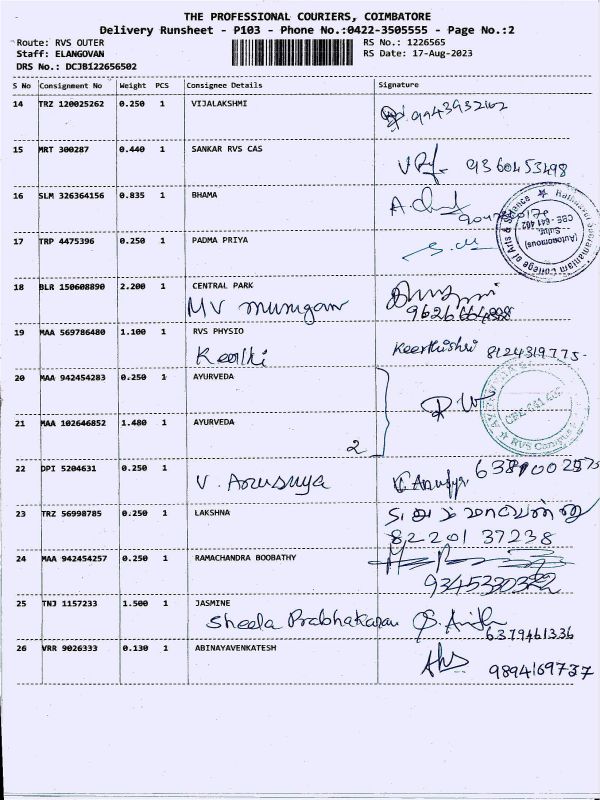 THE PROFESSIONAL COURIERS, COIMBATORE
Delivery Runsheet - P103 - Phone No.:0422-3505555 - Page No.:2
Route: RVS OUTER RS No.: 1226565
Staff: ELANGOVAN RS Date: 17-Aug-2023
DRS No.: DCJB122656502
S No Consignment No Weight PCS Consignee Details Signature
14 TRZ 120025262 0.250 1 VIJALAKSHMI
9943932102
15 MRT 300287 0.440 1 SANKAR RVS CAS
9360453498
16 SLM 326364156 0.835 1 BHAMA
17 TRP 4475396 0.250 1 PADMA PRIYA
18 BLR 150608890 2.200 1 CENTRAL PARK
MV murugan
19 MAA 569786480 1.100 1 RVS PHYSIO
Keerthi Keerthishri 8124319775
20 MAA 942454283 0.250 1 AYURVEDA
21 MAA 102646852 1.480 1 AYURVEDA
2
RVS Campus
22 DPI 5204631 0.250 1
V. Anusuya
23 TRZ 56998785 0.250 1 LAKSHNA
82201 37238
24 MAA 942454257 0.250 1 RAMACHANDRA BOOBATHY
25 TNJ 1157233 1.500 1 JASMINE
Sheela Prabhakaran
6379461336
26 VRR 9026333 0.130 1 ABINAYAVENKATESH
9894169737